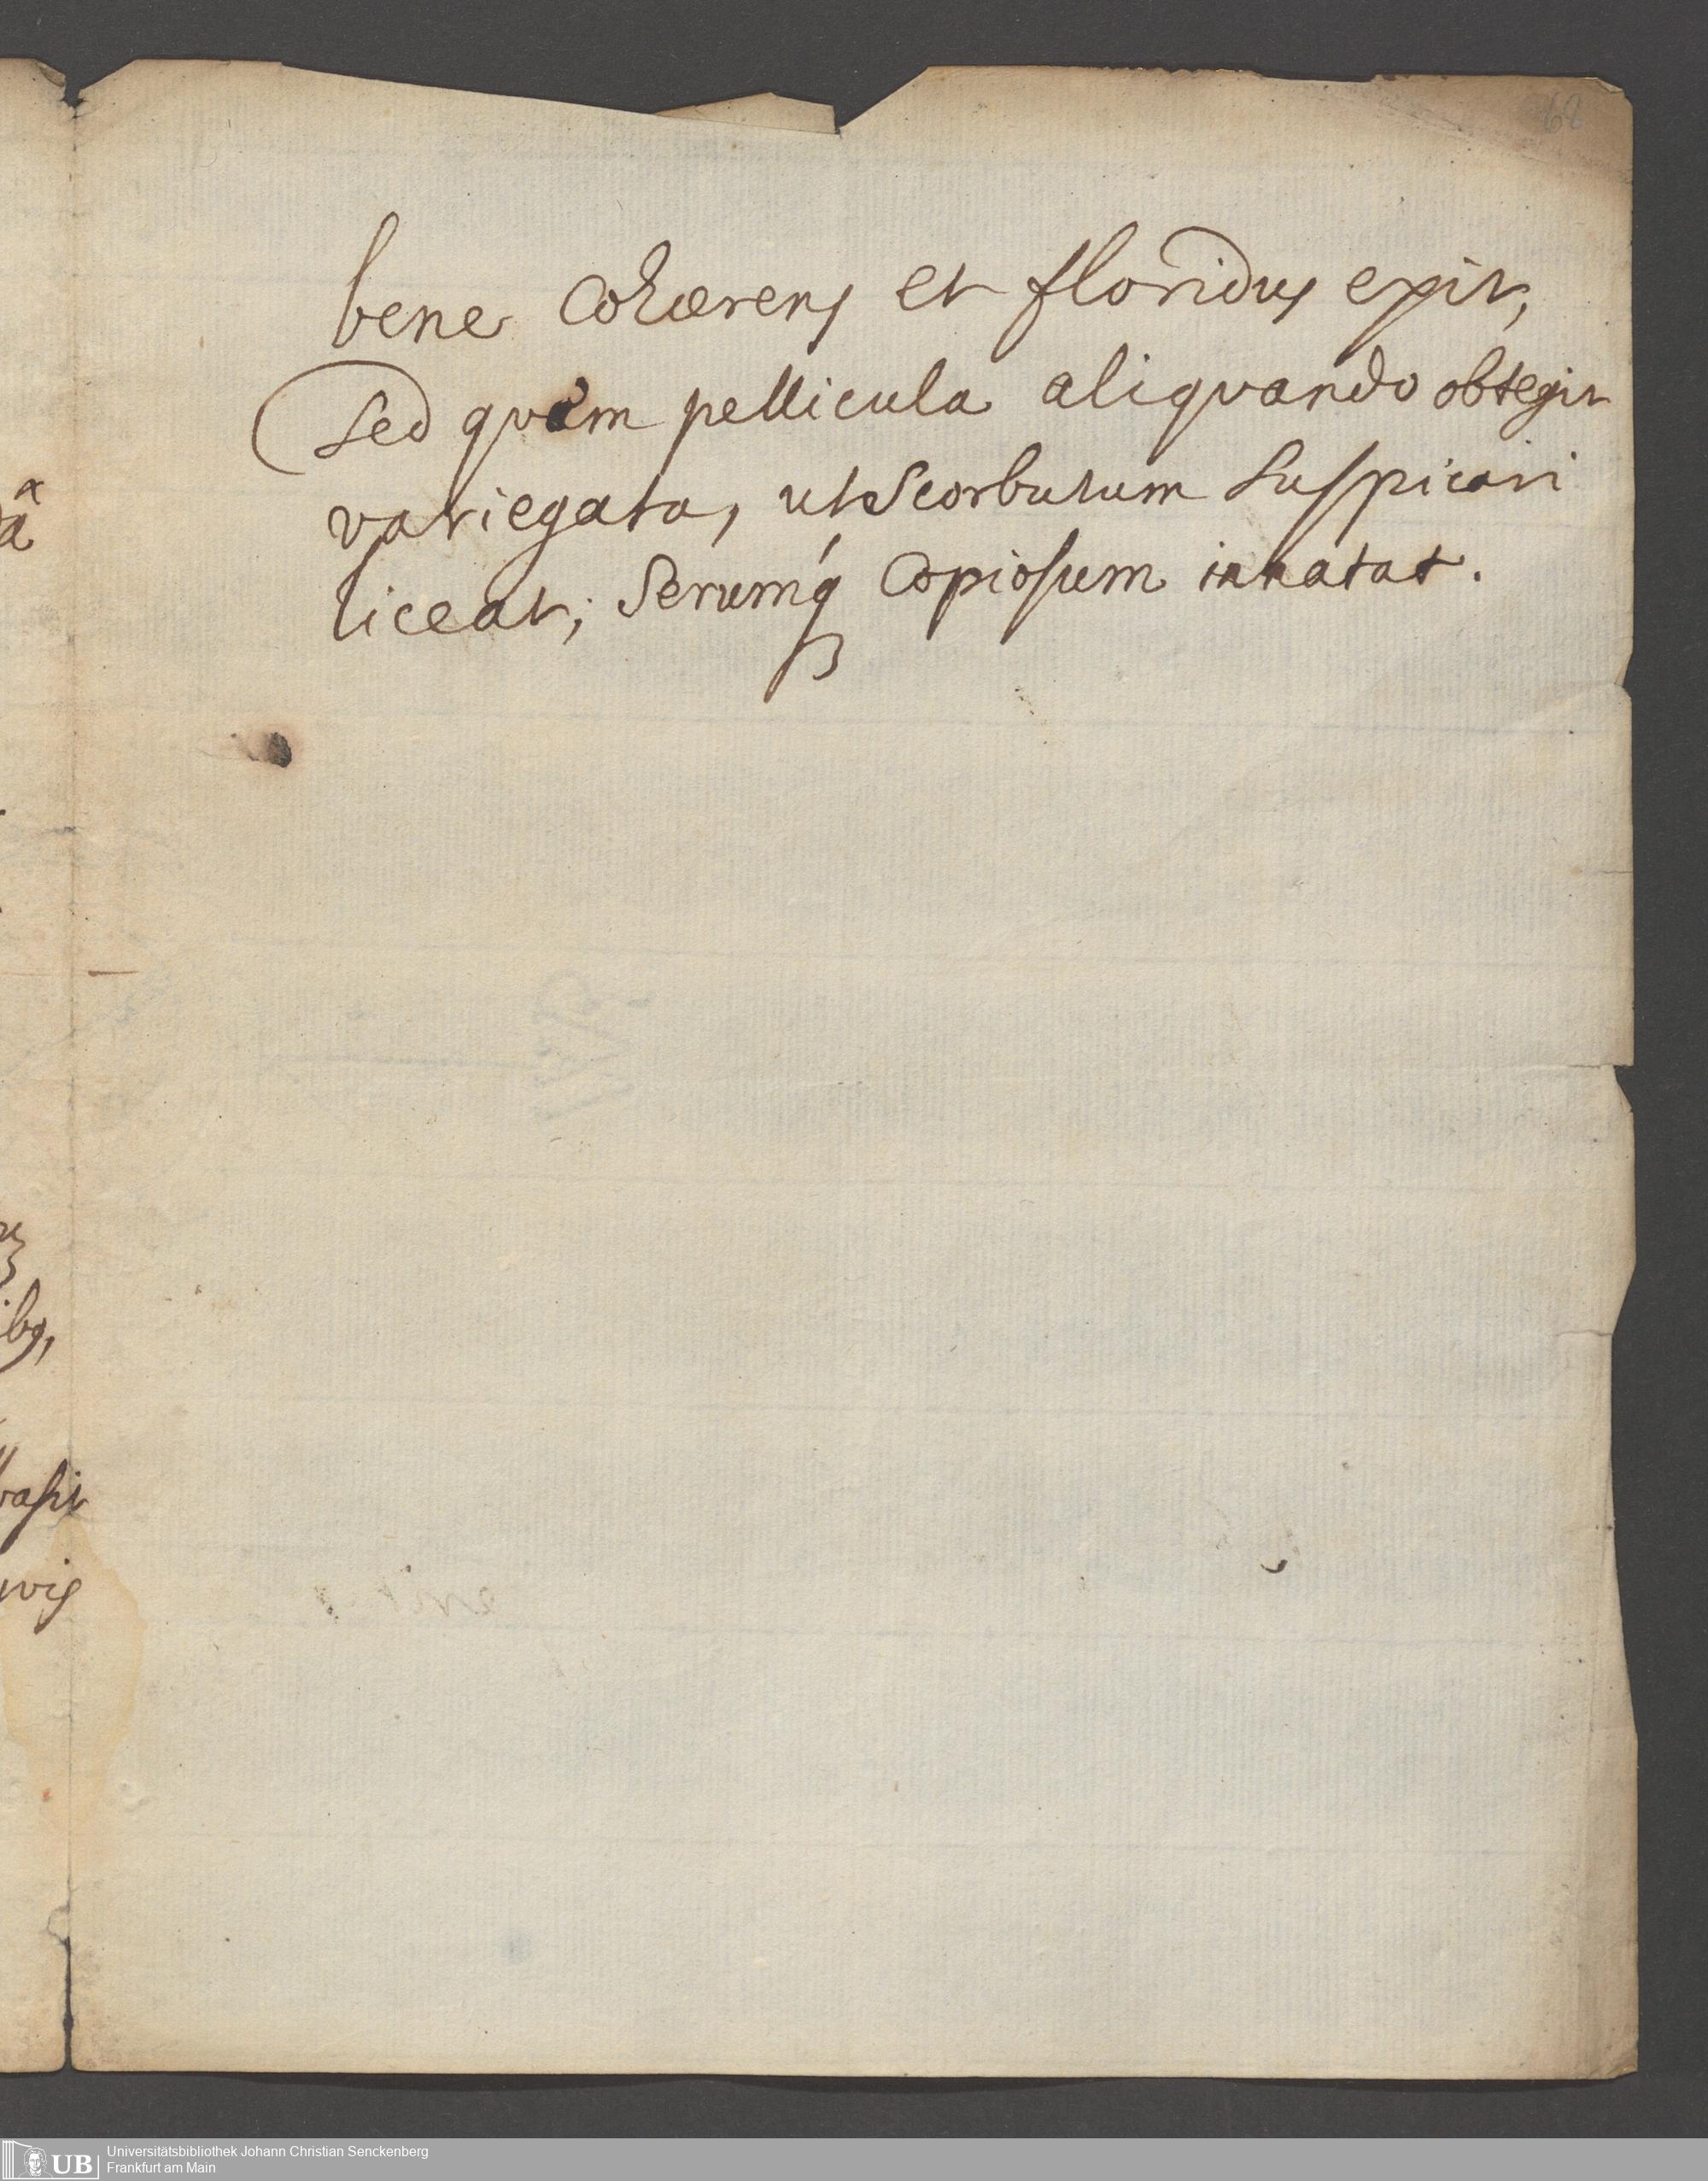 62
bene cohærens et floridus exit,
sed quem pellicula aliquando obtegit
variegata, ut scorbutum suspicari
liceat; serumq́ copiosum innatat.
vasit
Universitätsbibliothek Johann Christian Senckenberg
Frankfurt am Main
UB